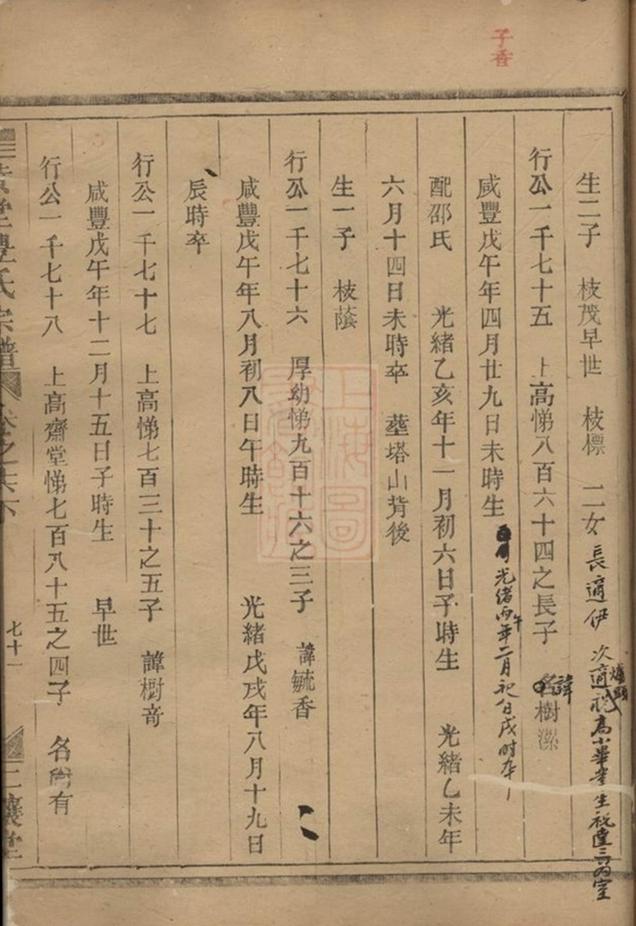 子香
生二子 枝茂早世 枝標 二女 長適伊 次適祝高小畢業生祝達三為室
行公一千七十五 上高悌八百六十四之長子 諱樹濚
咸豐戊午年四月廿九日未時生 光緒丙午年二月初八日戌时卒
配邵氏 光緒乙亥年十一月初六日子時生 光緒乙未年
六月十四日未時卒 塟塔山背後
生一子 枝蔭
行公一千七十六 厚幼悌九百十六之三子 諱毓香
咸豐戊午年八月初八日午時生 光緒戊戌年八月十九日
辰時卒
行公一千七十七 上高悌七百三十之五子 諱樹竒
咸豐戊午年十二月十五日子時生 早世
行公一千七十八 上高齋堂悌七百八十五之四子 名樹有
豐氏宗譜 卷之六下 七十一